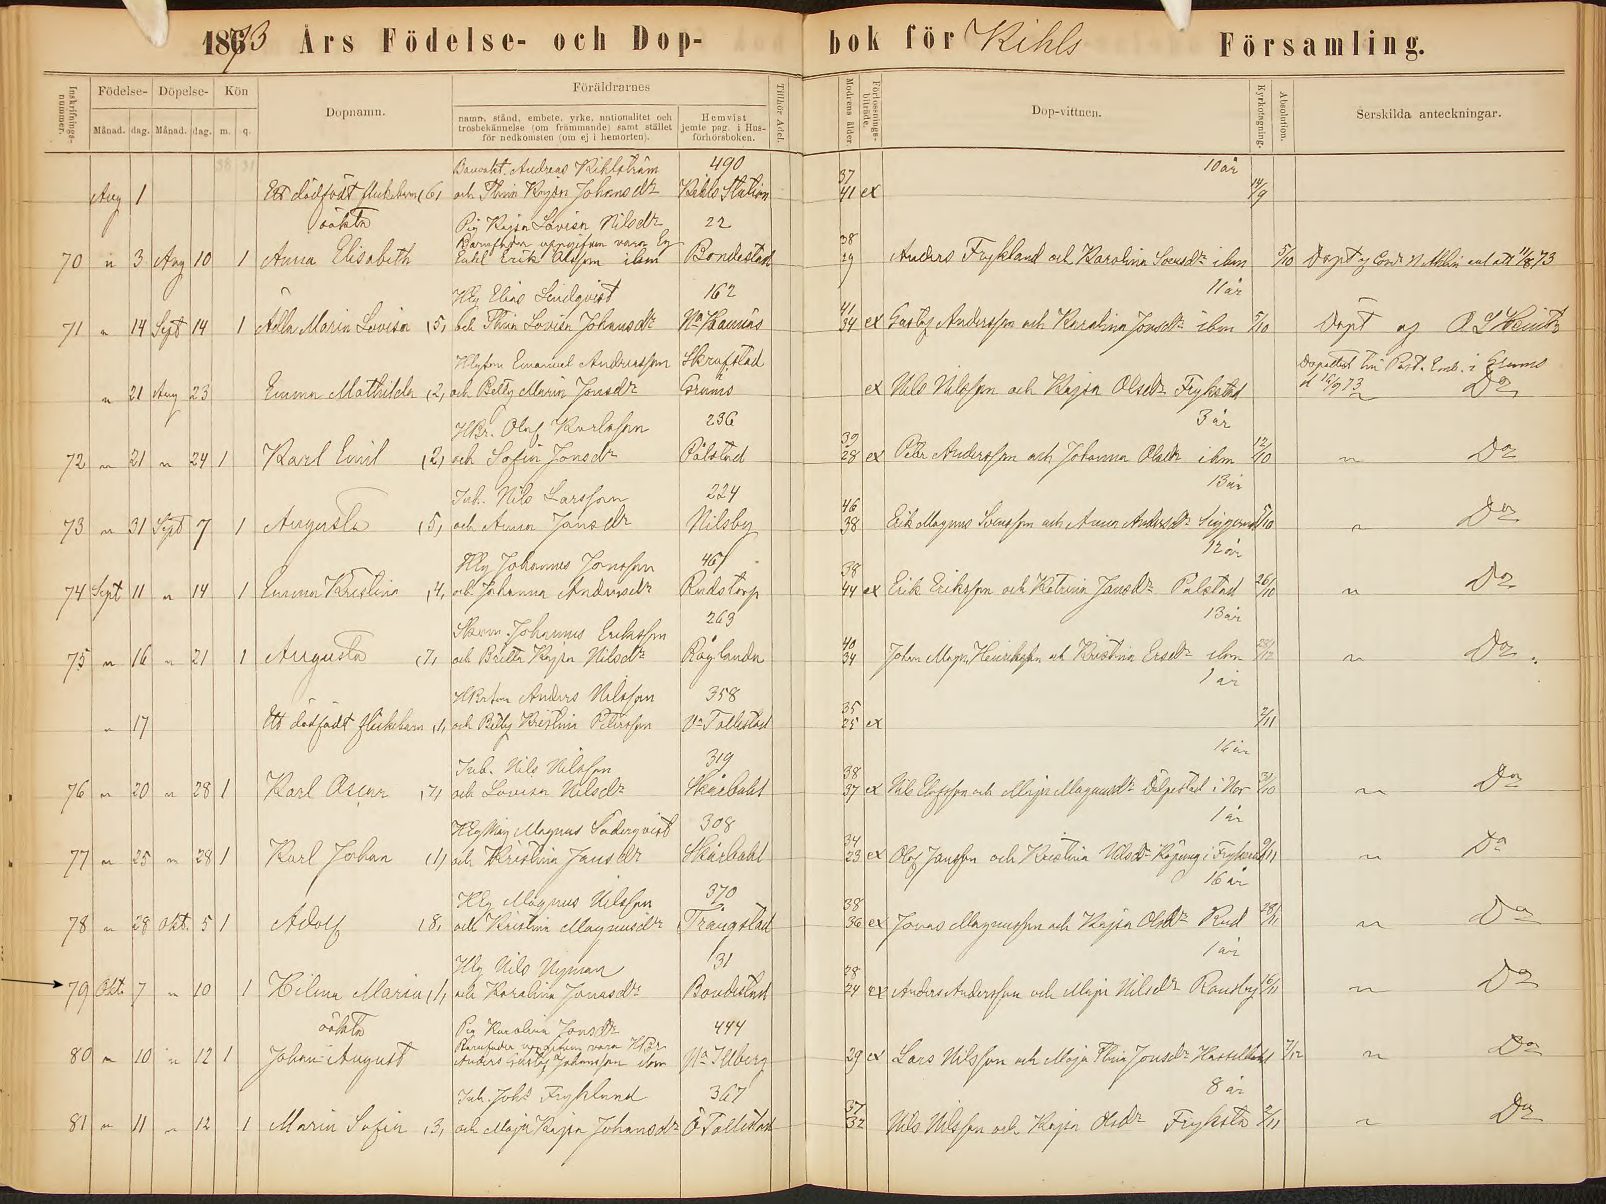 1873 Års Födelse- och Dop- bok för Kihls Församling.
Inskrifnings-nummer. Födelse- Döpelse- Kön Dopnamn. Föräldrarnes Tillhör Adel. Modrens ålder Förlossnings-biträde. Dop-vittnen. Kyrkotagning. Absolution. Serskilda anteckningar.
Månad. dag. Månad. dag. m. q. namn, stånd, embete, yrke, nationalitet och trosbekännelse (om främmande) samt stället för nedkomsten (om ej i hemorten). Hemvist jemte pag. i Hus-förhörsboken.
Andreas Kihlström 490 37 10 år
Aug 1 Ett dödfödt flickebarn (6) och Stina Kajsa Johansdr Kihls Station 41 ex 14/9
oäkta Pig Kajsa Lovisa Nilsdr 22 38
Barnfader uppgifven vara
70 " 3 Aug 10 1 Anna Elisabeth Erik Olsson ibm Bondestad 29 Anders Frykland och Karolina Svensdr ibm 5/10 Döpt af
Hlg Elias Lindqvist 162 41 11 år
71 " 14 Sept 14 1 Adla Maria Lovisa (5) och Stina Lovisa Johansdr 34 ex Gustaf Andersson och Karolina Jonsdr ibm 5/10 Döpt af
Emanuel Andersson Skrufstad
" 21 Aug 23 Emma Mathilda (2) och Betty Maria Jonsdr Grums ex Nils Nilsson och Kajsa Olsdr Frykstad 16/9 73 Do
HBr. Olof Karlsson 236 39 3 år
72 " 21 " 24 1 Karl Emil (2) och Sofia Jonsdr Pålstad 28 ex Petter Andersson och Johanna Olsdr ibm 12/10 " Do
Inh. Nils Larsson 224 46 13 år
73 " 31 Sept 7 1 Augusta (5) och Anna Jansdr Nilsby 38 Erik Magnus Svensson och Anna Andersdr 5/10 " Do
Hlg Johannes Jonsson 467 38 12 år
74 Sept 11 " 14 1 Emma Kristina (4) och Johanna Andersdr Rudstorp 44 ex Erik Eriksson och Katrina Jansdr Pålstad 26/10 " Do
Johannes Eriksson 263 40 13 år
75 " 16 " 21 1 Augusta (7) och Britta Kajsa Nilsdr Röglanda 34 Johan Magn. Henriksson och Kristina Ersdr ibm 28/12 " Do
Anders Nilsson 358 35 1 år
" 17 Ett dödfödt flickebarn (1) och Betty Kristina Petersson Na Tollestad 25 ex 2/11
Inh. Nils Nilsson 319 38 16 år
76 " 20 " 28 1 Karl Oscar (7) och Lovisa Nilsdr Skårbohl 37 ex Nils Olofsson och Maja Magnusdr i Nor 31/10 " Do
Magnus Söderqvist 308 34 1 år
77 " 25 " 28 1 Karl Johan (1) och Kristina Jansdr Skårbohl 23 ex Olof Jansson och Kristina Nilsdr 9/11 " Do
Hlg Magnus Nilsson 370 38 16 år
78 " 28 Okt. 5 1 Adolf (8) och Kristina Magnusdr Trångstad 36 ex Jonas Magnusson och Kajsa Olsdr Rud 28/11 " Do
Hlg Nils Nyman 131 28 1 år
79 Okt. 7 " 10 1 Hilma Maria (1) och Karolina Jonasdr Bondestad 24 ex Anders Andersson och Maja Nilsdr Ransby 16/11 " Do
oäkta Pig Karolina Jonsdr 444
Barnfader uppgifven vara
80 " 10 " 12 1 Johan August Anders Gustaf Johansson ibm Na Illberg 29 ex Lars Nilsson och Maja Stina Jonsdr 7/12 " Do
Inh. Johs Frykland 367 37 8 år
81 " 11 " 12 1 Maria Sofia (3) och Maja Kajsa Johansdr Ö Tollestad 32 Nils Nilsson och Kajsa Olsdr Fryksta 2/11 " Do